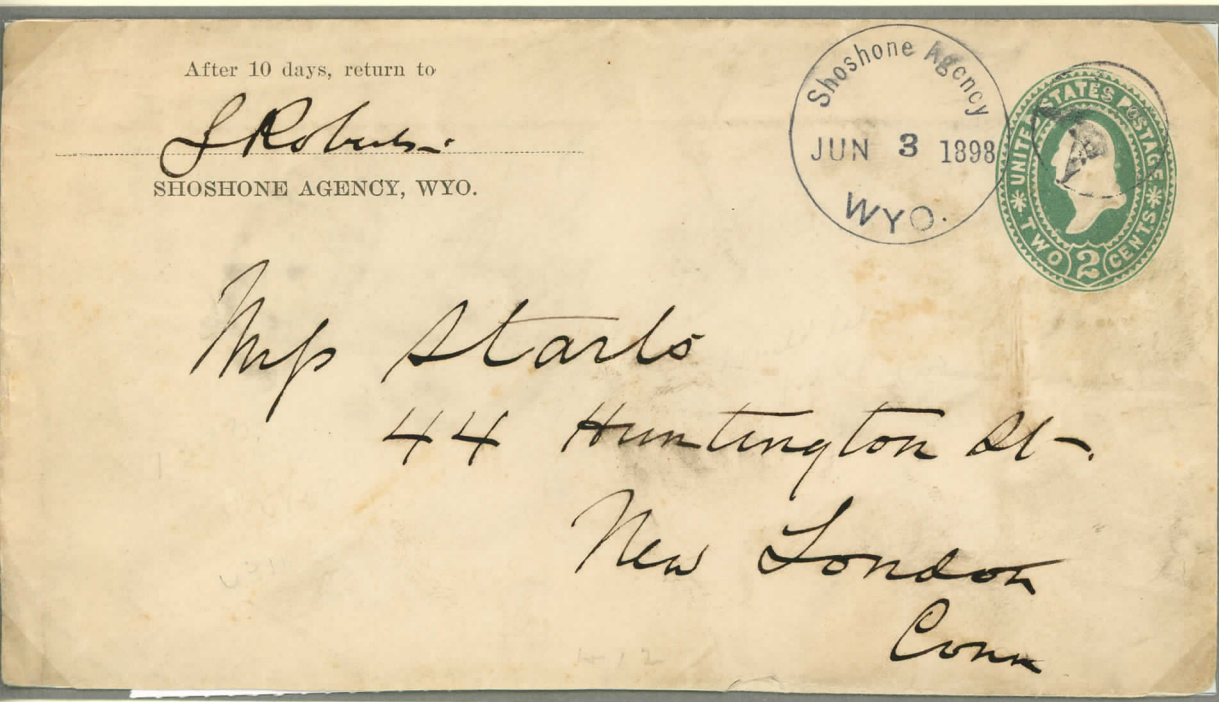 After 10 days, return to
J Roberts
SHOSHONE AGENCY, WYO.
Shoshone Agency
JUN 3 1898
WYO.
UNITED STATES POSTAGE
* TWO 2 CENTS *
Miss Starls
44 Huntington St.
New London
Conn